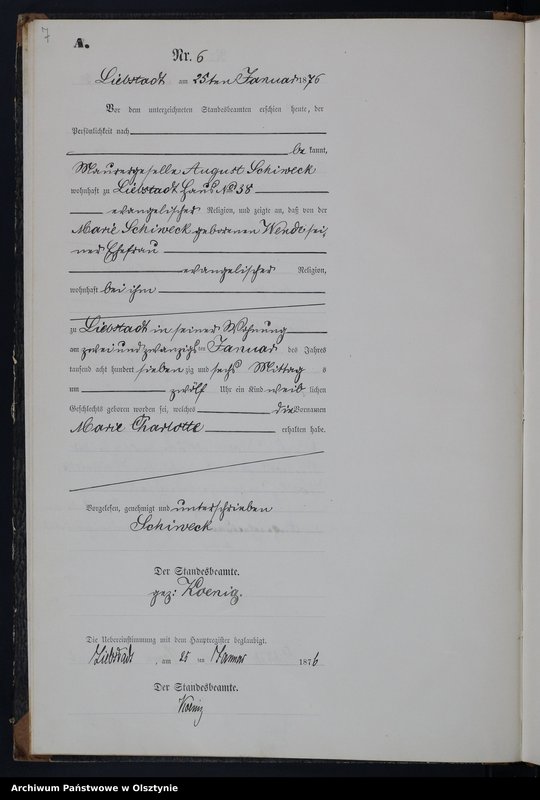 7
A.
Nr. 6
Liebstadt am 25ten Januar 1876
Vor dem unterzeichneten Standesbeamten erschien heute, der
Persönlichkeit nach
be kannt,
Maurergeselle August Schiweck
wohnhaft zu Liebstadt Haus No 38
evangelischer Religion, und zeigte an, daß von der
Marie Schiweck geborenen Wendt sei-
ner Ehefrau
evangelischer Religion,
wohnhaft bei ihm
zu Liebstadt in seiner Wohnung
am zwei und zwanzigsten Januar des Jahres
tausend acht hundert siebenzig und sechs Mittags
um zwölf Uhr ein Kind weiblichen
Geschlechts geboren worden sei, welches die Vornamen
Marie Charlotte erhalten habe.
Vorgelesen, genehmigt und unterschrieben
Schiweck
Der Standesbeamte.
gez: Koenig.
Die Uebereinstimmung mit dem Hauptregister beglaubigt.
Liebstadt, am 25 ten Januar 1876
Der Standesbeamte.
Koenig
Archiwum Państwowe w Olsztynie